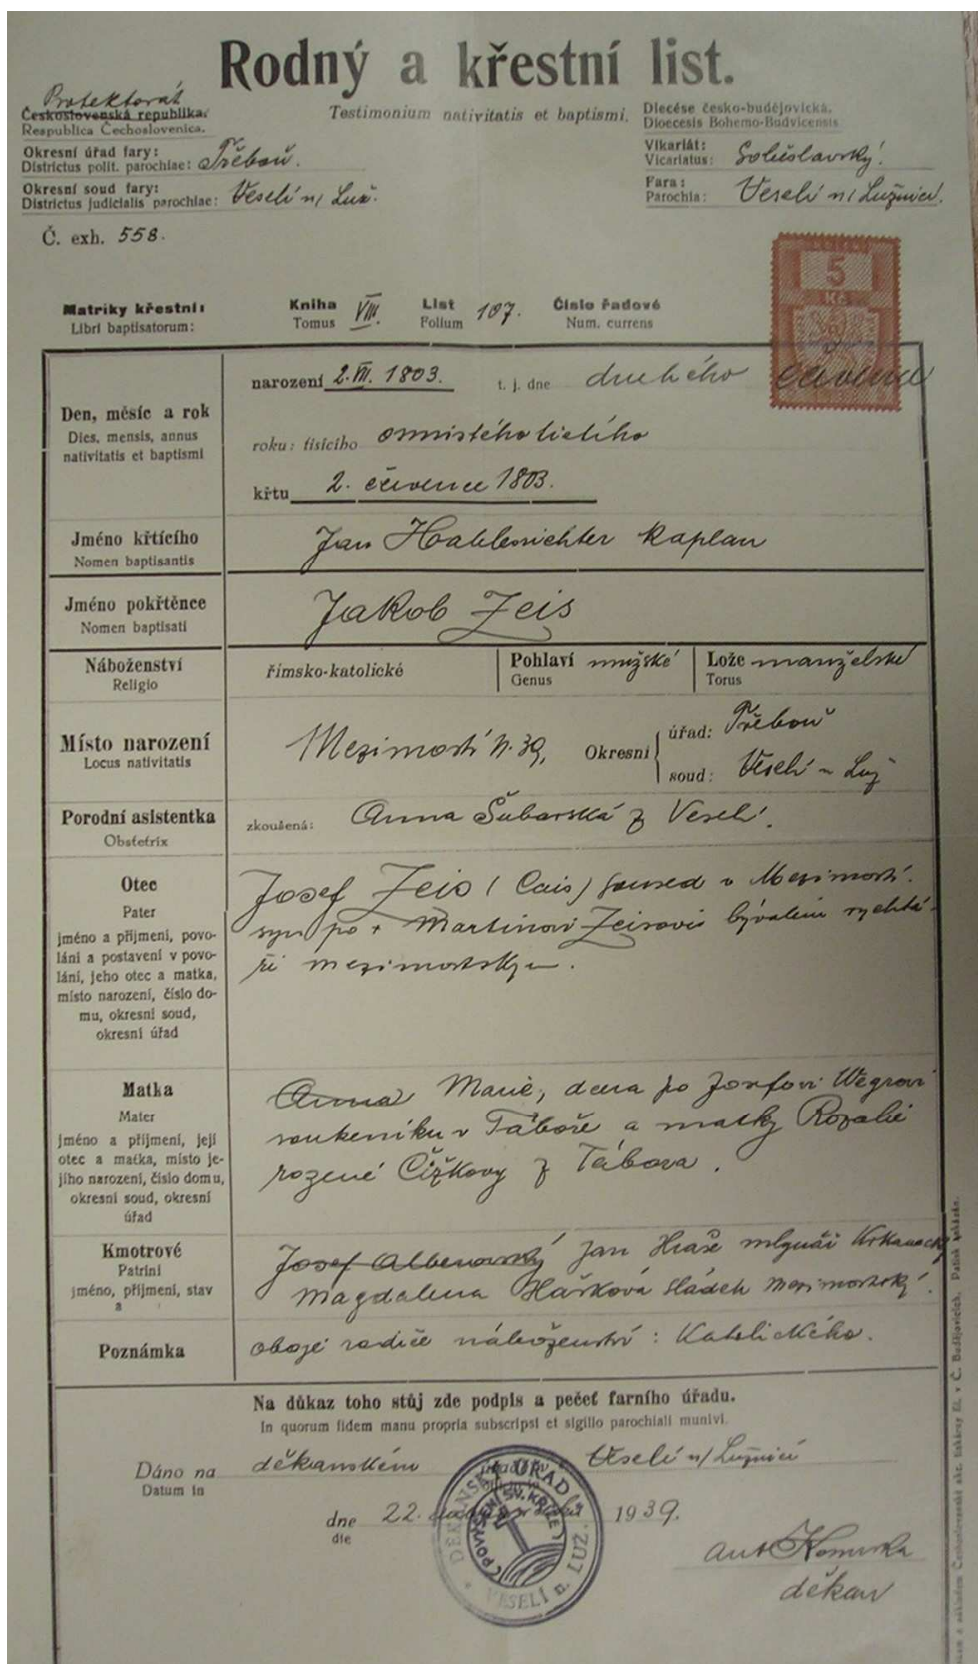 Rodný a křestní list.
Testimonium nativitatis et baptismi.
Protektorát
Československá republika.
Respublica Čechoslovenica.
Okresní úřad fary: Třeboň.
Districtus polit. parochiae:
Okresní soud fary: Veselí n/ Luž.
Districtus judicialis parochiae:
Č. exh. 558.
Diecése česko-budějovická.
Dioecesis Bohemo-Budvicensis
Vikariát: Soběslavský.
Vicariatus:
Fara: Veselí n/ Lužnicí.
Parochia:
5
Kč
Matriky křestní: Kniha VIII. List 107. Číslo řadové
Libri baptisatorum: Tomus Folium Num. currens
Den, měsíc a rok
Dies, mensis, annus
nativitatis et baptismi
narození 2. VII. 1803. t. j. dne druhého července
roku: tisícího osmistého třetího
křtu 2. července 1803.
Jméno křtícího
Nomen baptisantis
Jan kaplan
Jméno pokřtěnce
Nomen baptisati
Jakob Zeis
Náboženství
Religio
římsko-katolické
Pohlaví mužské
Genus
Lože manželské
Torus
Místo narození
Locus nativitatis
Mezimostí N. 39, Okresní
úřad: Třeboň
soud: Veselí n Luž
Porodní asistentka
Obstetrix
zkoušená: Anna Šubarská z Veselí.
Otec
Pater
jméno a příjmení, povo-
lání a postavení v povo-
lání, jeho otec a matka,
místo narození, číslo do-
mu, okresní soud,
okresní úřad
Josef Zeis (Cais) soused v Mezimostí.
syn po + Martinovi Zeisovi bývalém rychtá-
ři mezimostským.
Matka
Mater
jméno a příjmení, její
otec a matka, místo je-
jího narození, číslo domu,
okresní soud, okresní
úřad
Anna Marie, dcera po Josefovi Wegrovi
soukeníku v Táboře a matky Rozalie
rozené Čížkovy z Tábora.
Kmotrové
Patrini
jméno, příjmení, stav
a
Josef Jan Hraše mlynář
Magdalena Hašková sládek mezimostský.
Poznámka
oboje rodiče náboženství: Katolického.
Na důkaz toho stůj zde podpis a pečeť farního úřadu.
In quorum fidem manu propria subscripsi et sigillo parochiali munivi.
Dáno na děkanském Veselí n/ Lužnicí
Datum in
dne 22. 1939.
die
DĚKANSKÝ ÚŘAD
POVÝŠENÍ SV. KŘÍŽE
VESELÍ n. LUŽ.
Ant.
děkan